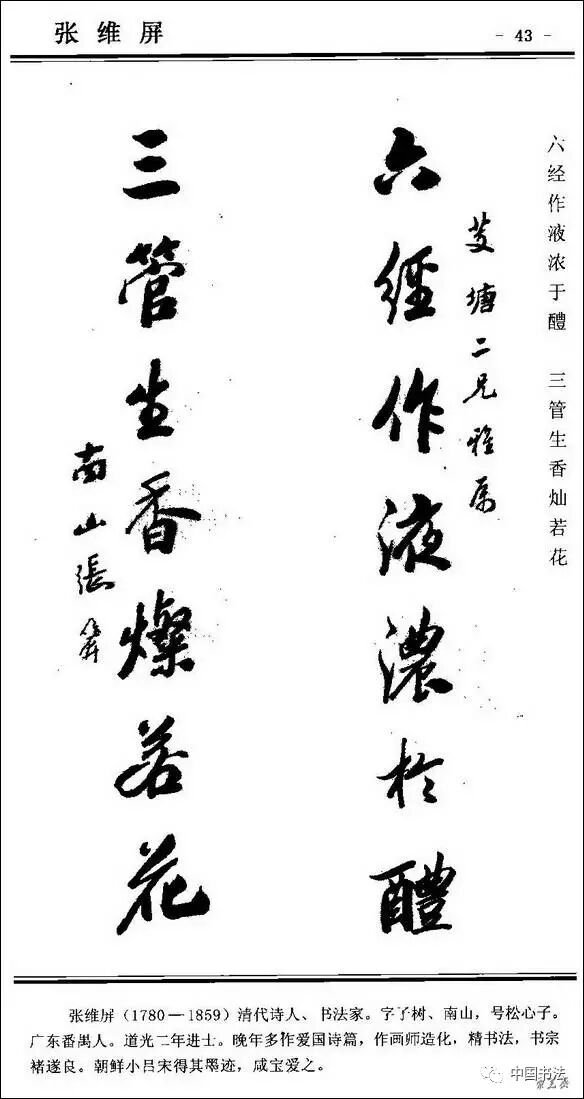 张维屏
- 43 -
六经作液浓于醴 三管生香灿若花
艾塘二兄雅属
六經作液濃於醴
三管生香燦若花
南山張
张维屏（1780—1859）清代诗人、书法家。字子树、南山，号松心子。
广东番禺人。道光二年进士。晚年多作爱国诗篇，作画师造化，精书法，书宗
褚遂良。朝鲜小吕宋得其墨迹，咸宝爱之。
中国书法